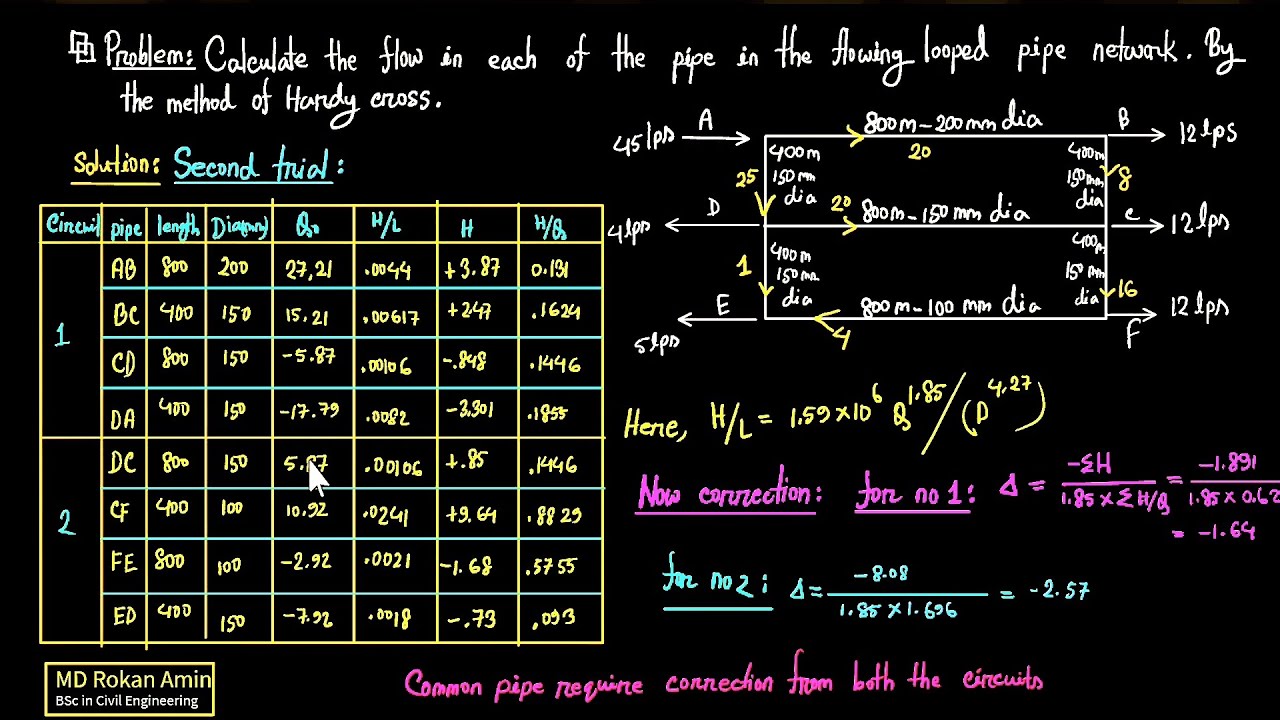 Problem: Calculate the flow in each of the pipe in the flowing looped pipe network. By
the method of Hardy cross.
Solution: Second trial:
Circuit pipe length Dia(mm) Q₀ H/L H H/Q
1
AB 800 200 27,21 .0044 +3.87 0.131
BC 400 150 15.21 .00617 +247 .1624
CD 800 150 -5.87 .00106 -.848 .1446
DA 400 150 -17.79 .0082 -3.301 .1855
2
DC 800 150 5.87 .00106 +.85 .1446
CF 400 100 10.92 .0241 +9.64 .8829
FE 800 100 -2.92 .0021 -1.68 .5755
ED 400 150 -7.92 .0018 -.73 .093
45 lps A 800m-200mm dia B 12 lps
20
400m 150mm dia
25
400m 150mm dia
8
D 20 800m-150mm dia c
4 lps 12 lps
400m 150mm dia
1
400m 150mm dia
16
E 800m-100mm dia 12 lps
5 lps 4 F
Here, H/L = 1.59×10⁶ Q^1.85/(D^4.27)
Now correction: for no 1: Δ = -ΣH / 1.85×ΣH/Q = -1.891 / 1.85×0.62
= -1.64
for no 2: Δ = -8.08 / 1.85×1.696 = -2.57
Common pipe require correction from both the circuits
MD Rokan Amin
BSc in Civil Engineering